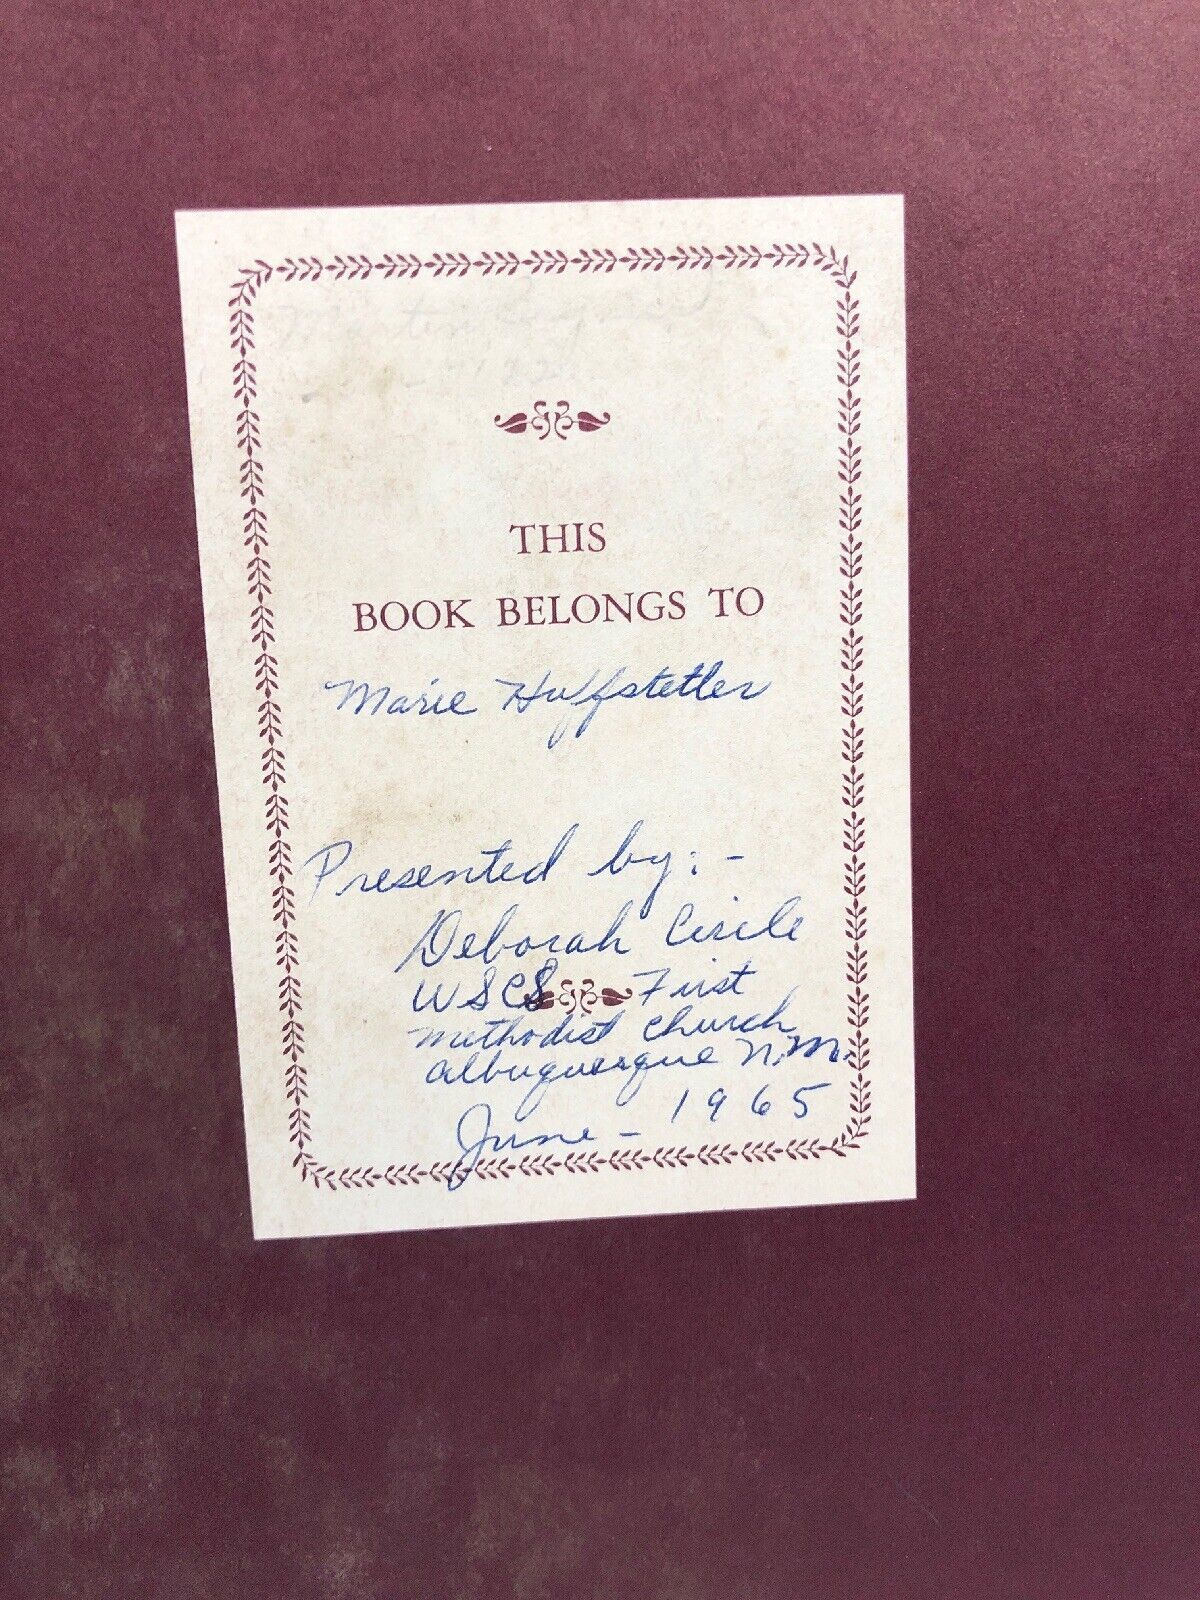 THIS
BOOK BELONGS TO
Marie Huffstetler
Presented by: -
Deborah Circle
WSCS First
Methodist Church
Albuquerque N.M.
June - 1965